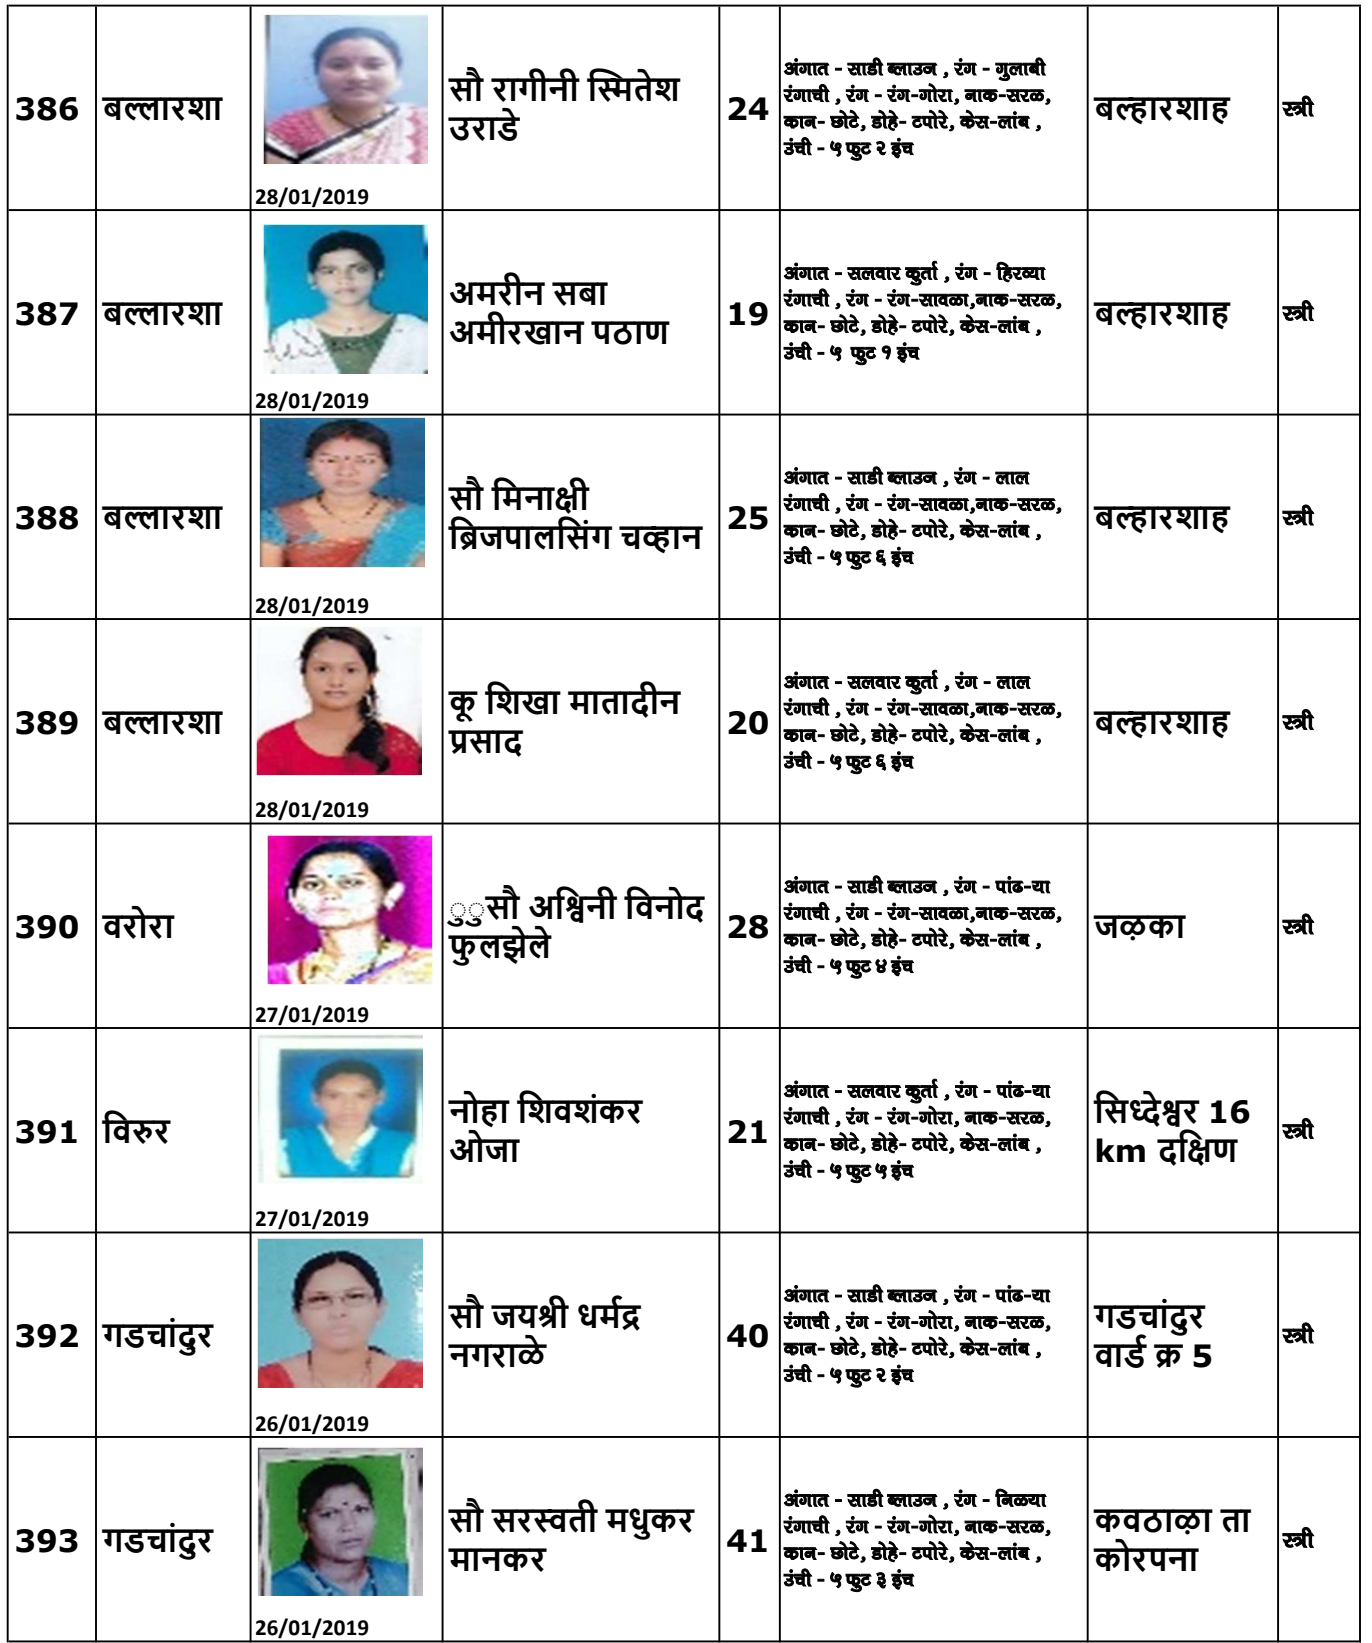 386 बल्लारशा 28/01/2019 सौ रागीनी स्मितेश
उराडे 24 अंगात - साडी ब्लाउज , रंग - गुलाबी
रंगाची , रंग - रंग-गोरा, नाक-सरळ,
कान- छोटे, डोहे- टपोरे, केस-लांब ,
उंची - ५ फुट २ इंच बल्हारशाह स्त्री
387 बल्लारशा 28/01/2019 अमरीन सबा
अमीरखान पठाण 19 अंगात - सलवार कुर्ता , रंग - हिरव्या
रंगाची , रंग - रंग-सावळा,नाक-सरळ,
कान- छोटे, डोहे- टपोरे, केस-लांब ,
उंची - ५ फुट १ इंच बल्हारशाह स्त्री
388 बल्लारशा 28/01/2019 सौ मिनाक्षी
ब्रिजपालसिंग चव्हान 25 अंगात - साडी ब्लाउज , रंग - लाल
रंगाची , रंग - रंग-सावळा,नाक-सरळ,
कान- छोटे, डोहे- टपोरे, केस-लांब ,
उंची - ५ फुट ६ इंच बल्हारशाह स्त्री
389 बल्लारशा 28/01/2019 कू शिखा मातादीन
प्रसाद 20 अंगात - सलवार कुर्ता , रंग - लाल
रंगाची , रंग - रंग-सावळा,नाक-सरळ,
कान- छोटे, डोहे- टपोरे, केस-लांब ,
उंची - ५ फुट ६ इंच बल्हारशाह स्त्री
390 वरोरा 27/01/2019 ुुसौ अश्विनी विनोद
फुलझेले 28 अंगात - साडी ब्लाउज , रंग - पांढ-या
रंगाची , रंग - रंग-सावळा,नाक-सरळ,
कान- छोटे, डोहे- टपोरे, केस-लांब ,
उंची - ५ फुट ४ इंच जळका स्त्री
391 विरुर 27/01/2019 नोहा शिवशंकर
ओजा 21 अंगात - सलवार कुर्ता , रंग - पांढ-या
रंगाची , रंग - रंग-गोरा, नाक-सरळ,
कान- छोटे, डोहे- टपोरे, केस-लांब ,
उंची - ५ फुट ५ इंच सिध्देश्वर 16
km दक्षिण स्त्री
392 गडचांदुर 26/01/2019 सौ जयश्री धर्मद्र
नगराळे 40 अंगात - साडी ब्लाउज , रंग - पांढ-या
रंगाची , रंग - रंग-गोरा, नाक-सरळ,
कान- छोटे, डोहे- टपोरे, केस-लांब ,
उंची - ५ फुट २ इंच गडचांदुर
वार्ड क्र 5 स्त्री
393 गडचांदुर 26/01/2019 सौ सरस्वती मधुकर
मानकर 41 अंगात - साडी ब्लाउज , रंग - निळया
रंगाची , रंग - रंग-गोरा, नाक-सरळ,
कान- छोटे, डोहे- टपोरे, केस-लांब ,
उंची - ५ फुट ३ इंच कवठाळा ता
कोरपना स्त्री